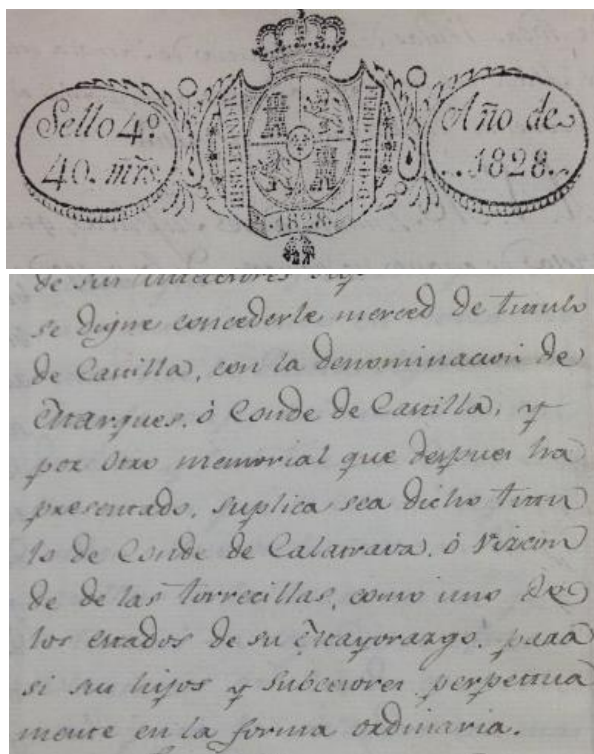 Sello 4º
40. mrs
HISP. ET IND. R.
1828
Año de
1828.
de sus
se digne concederle merced de titulo
de Castilla, con la denominacion de
Marques, ó Conde de Castilla, y
por otro memorial que despues ha
presentado, suplica sea dicho titu
lo de Conde de Calatrava, ó Vizcon
de de las Torrecillas, como uno de
los estados de su Mayorazgo, para
si sus hijos y subcesores perpetua
mente en la forma ordinaria.